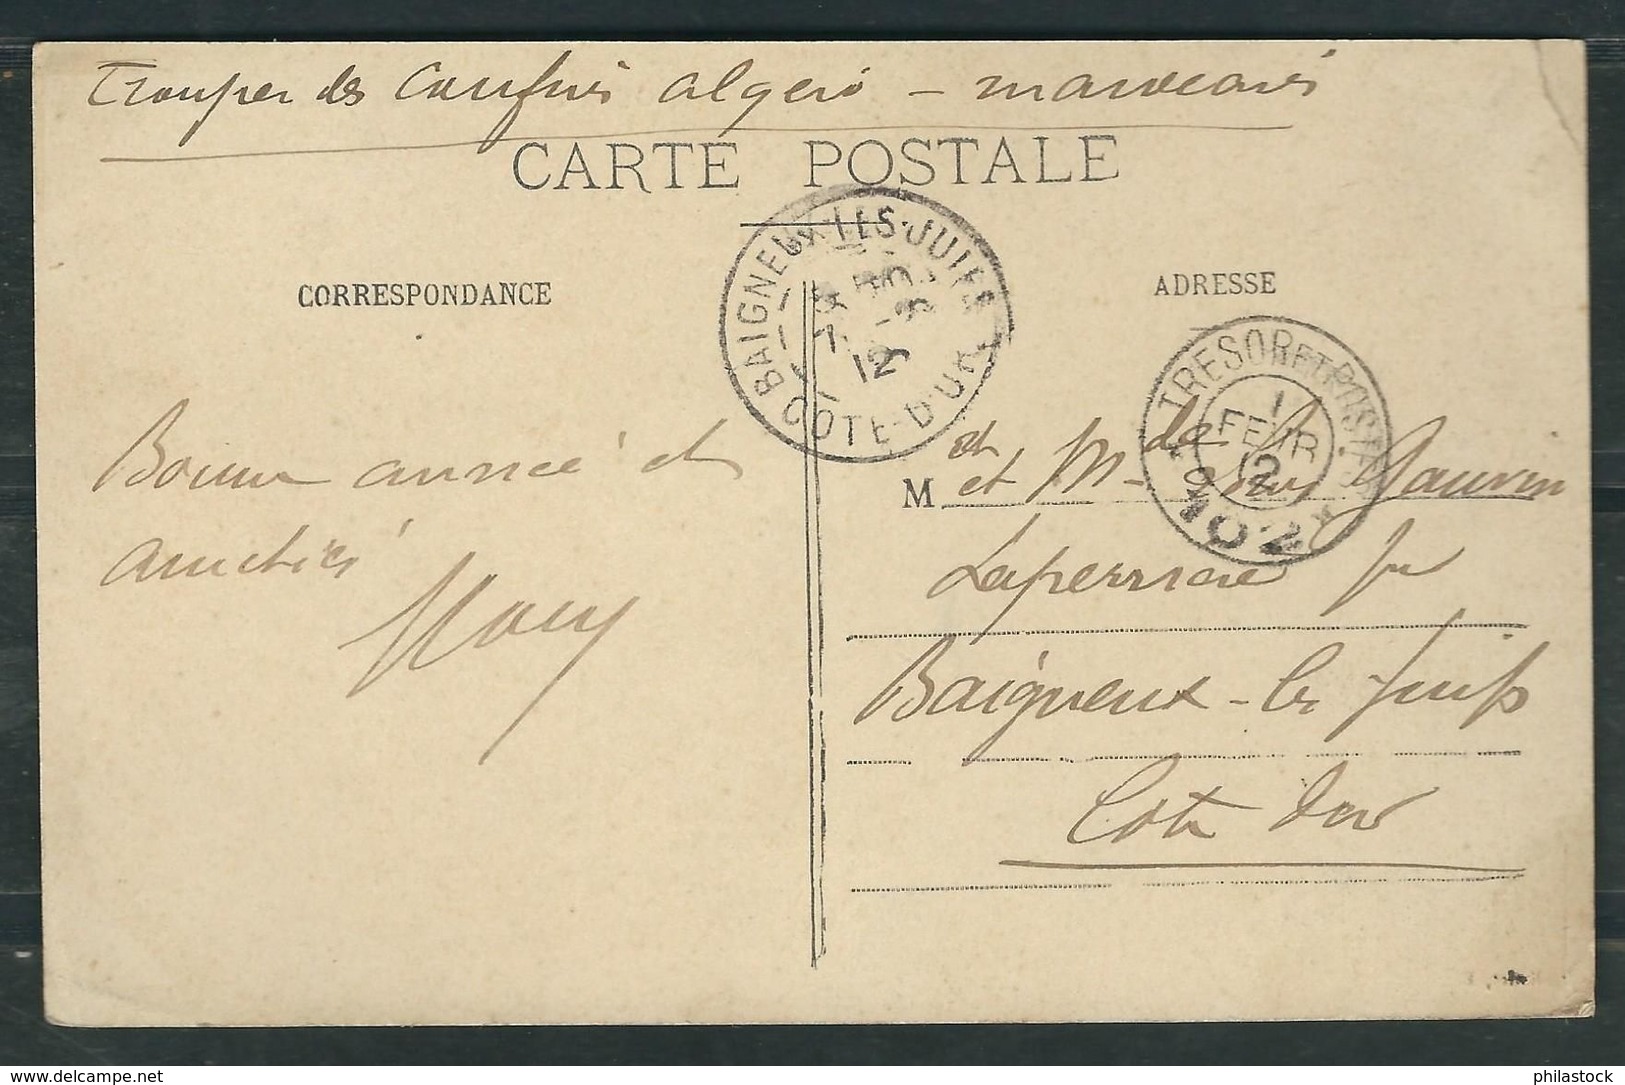 Troupes des confins algero - marocains
CARTE POSTALE
BAIGNEUX-LES-JUIFS
12
COTE-D'OR
CORRESPONDANCE
ADRESSE
TRESOR ET POSTES
1
FEVR
12
102
Bonne année et
amitiés
M et M
Laperrière
Baigneux-les Juifs
Cote d'or
delcampe.net
philastock